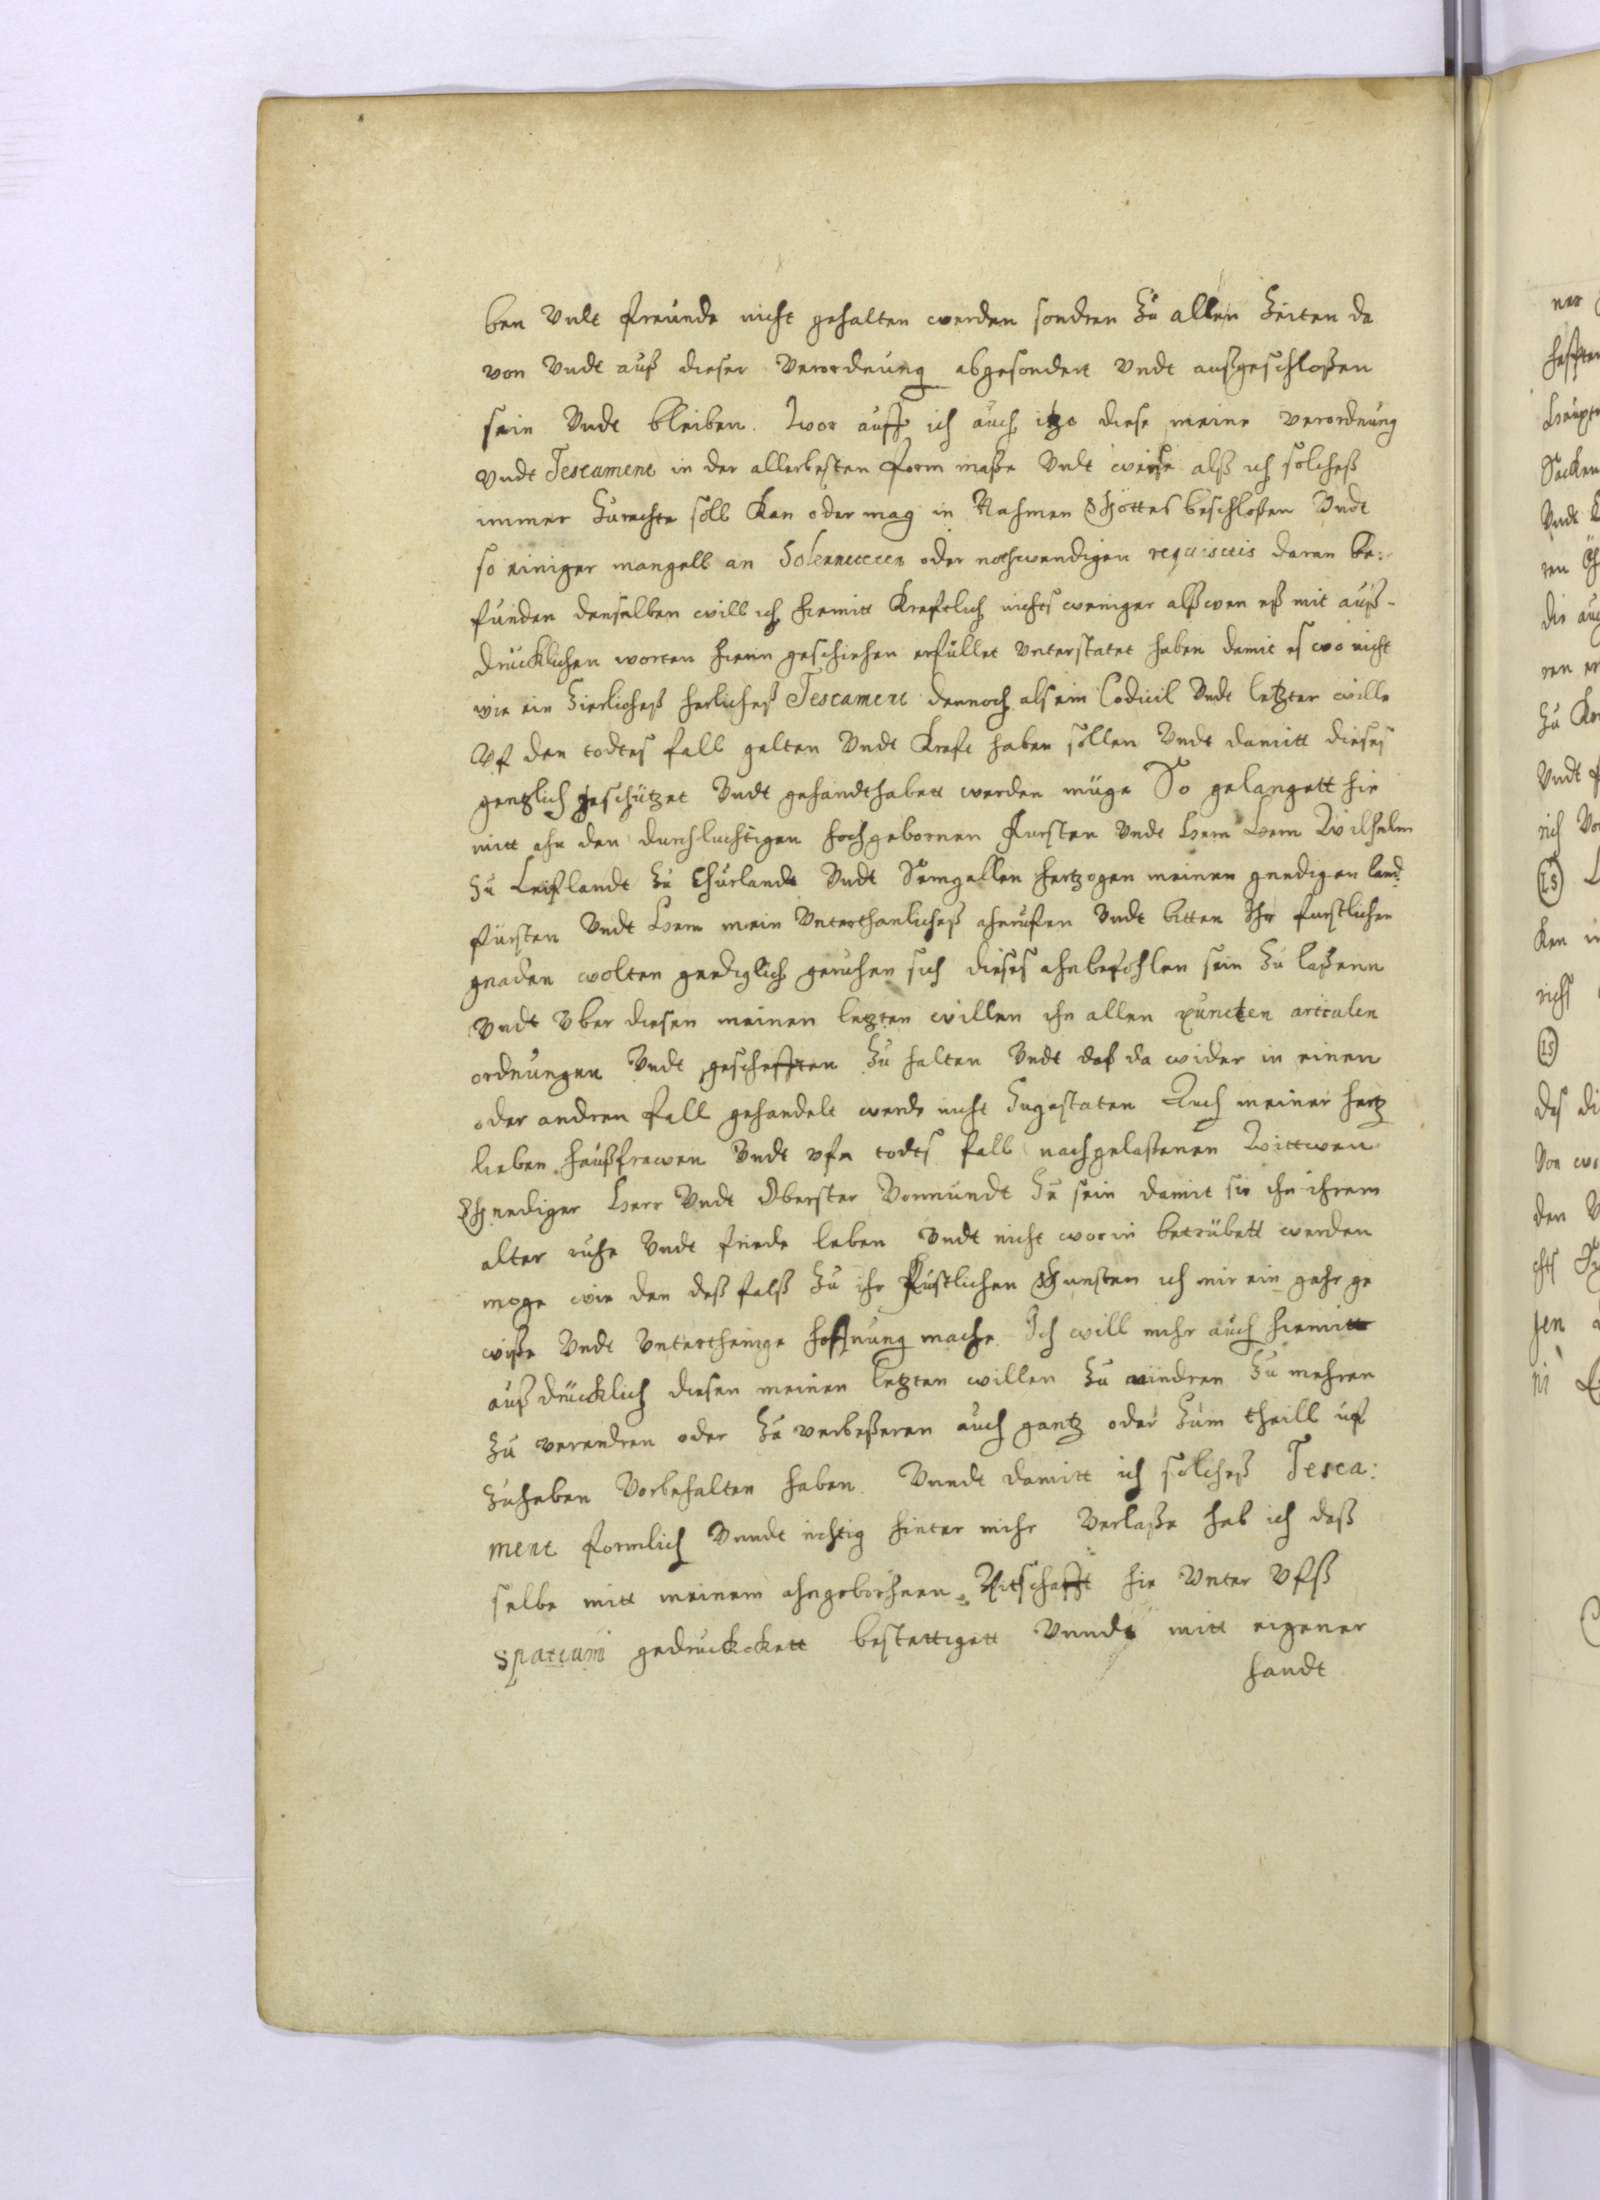 ben Vndt freunde nicht gehalten werden sondren Zu allen Zeiten da
von Vndt auß dieser Verordnung abgesondert Vndt außgeschloßen
sein Vndt bleiben. Wor auff ich auch itzo diese meine verordnung
Vndt Testament in der allerbesten form maße Vndt weise alß ich solcheß
immer Zurechte soll Kan oder mag in Nahmen Gottes beschloßen Vndt
so einiger mangell an Solenniteten oder nothwendigen requisitis daran be:
funden denselben will ich hiemitt Kreftlich nichts weniger alß wen eß mit auß-
drücklichen worten hierin geschiehen erfüllet Vnterstatet haben damit es wo nicht
wie ein Zierlicheß herlicheß Testament dennoch als ein Codicil Vndt letzter wille
Vf den todtes fall gelten Vndt Kraft haben sollen Vndt damitt dieses
gentzlich geschützet Vndt gehandthabett werden müge So gelangett hie
mitt ahn den durchluchtigen hochgebornen Fursten Vndt Hern Hern Wilhelm
Zu Leiflandt Zu Churlandt Vndt Semgallen Hertzogen meinen gnedigen land
fürsten Vndt Hern mein Vnterthanlicheß ahnrufen Vndt bitten Ihr furstlichen
gnaden wolten gnediglich geruhen sich dieses ahnbefohlen sein Zu laßenn
Vndt Vber diesen meinen letzten willen ihn allen puncten articulen
ordnungen Vndt geschefften Zu halten Vndt daß da wider in einen
oder andren fall gehandelt werde nicht Zugestaten Auch meiner hertz
lieben haußfrawen Vndt vfn todts fall nachgelaßenen Wittwen
Gnediger Herr Vndt Oberster Vormundt Zu sein damit sie ihn ihrem
alter ruhe Vndt friede leben Vndt nicht worin betrübett werden
moge wie den deßfalß Zu ihr Fürstlichen Gunsten ich mir ein gahr ge
wiße Vndt Vnterthenige hoffnung mache. Ich will mihr auch hiemitt
außdrücklich diesen meinen letzten willen Zu mindren Zu mehren
Zu verendren oder Zu verbeßeren auch gantz oder Zum theill uf
Zuheben Vorbehalten haben. Vnndt damitt ich solcheß Testa:
ment formlich Vnndt richtig hinter mihr Verlaße hab ich daß
selbe mitt meinem ahngebohrnen Pitschafft hie Vnter Vfß
spatium gedruckckett bestettigett Vnndt mitt eigener
handt